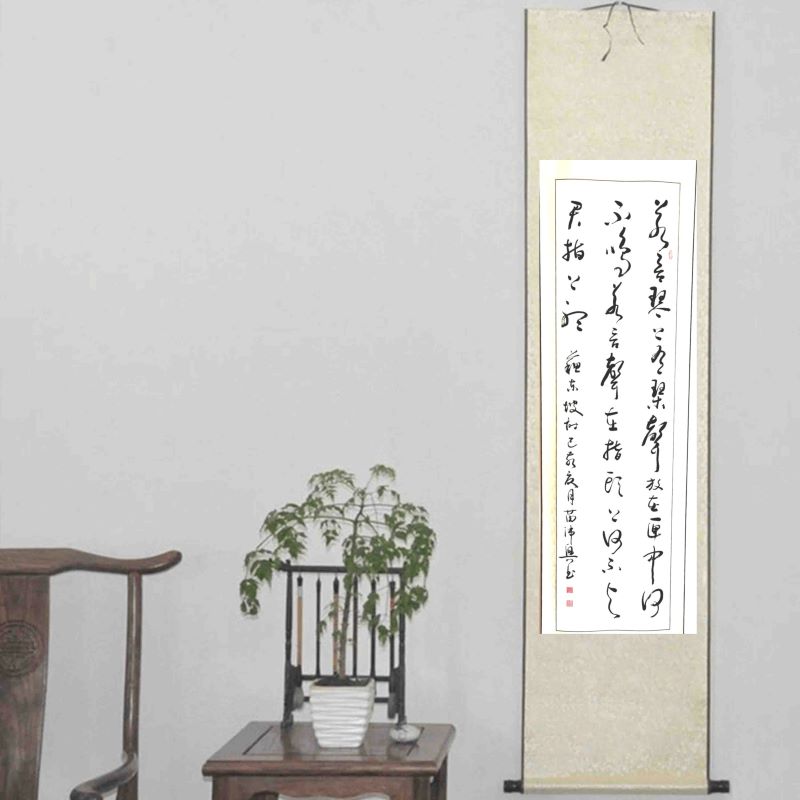 若言琴上有琴聲放在匣中何
不鳴若言聲在指頭上何不於
君指上聽 蘇東坡 己亥夏月苗 書